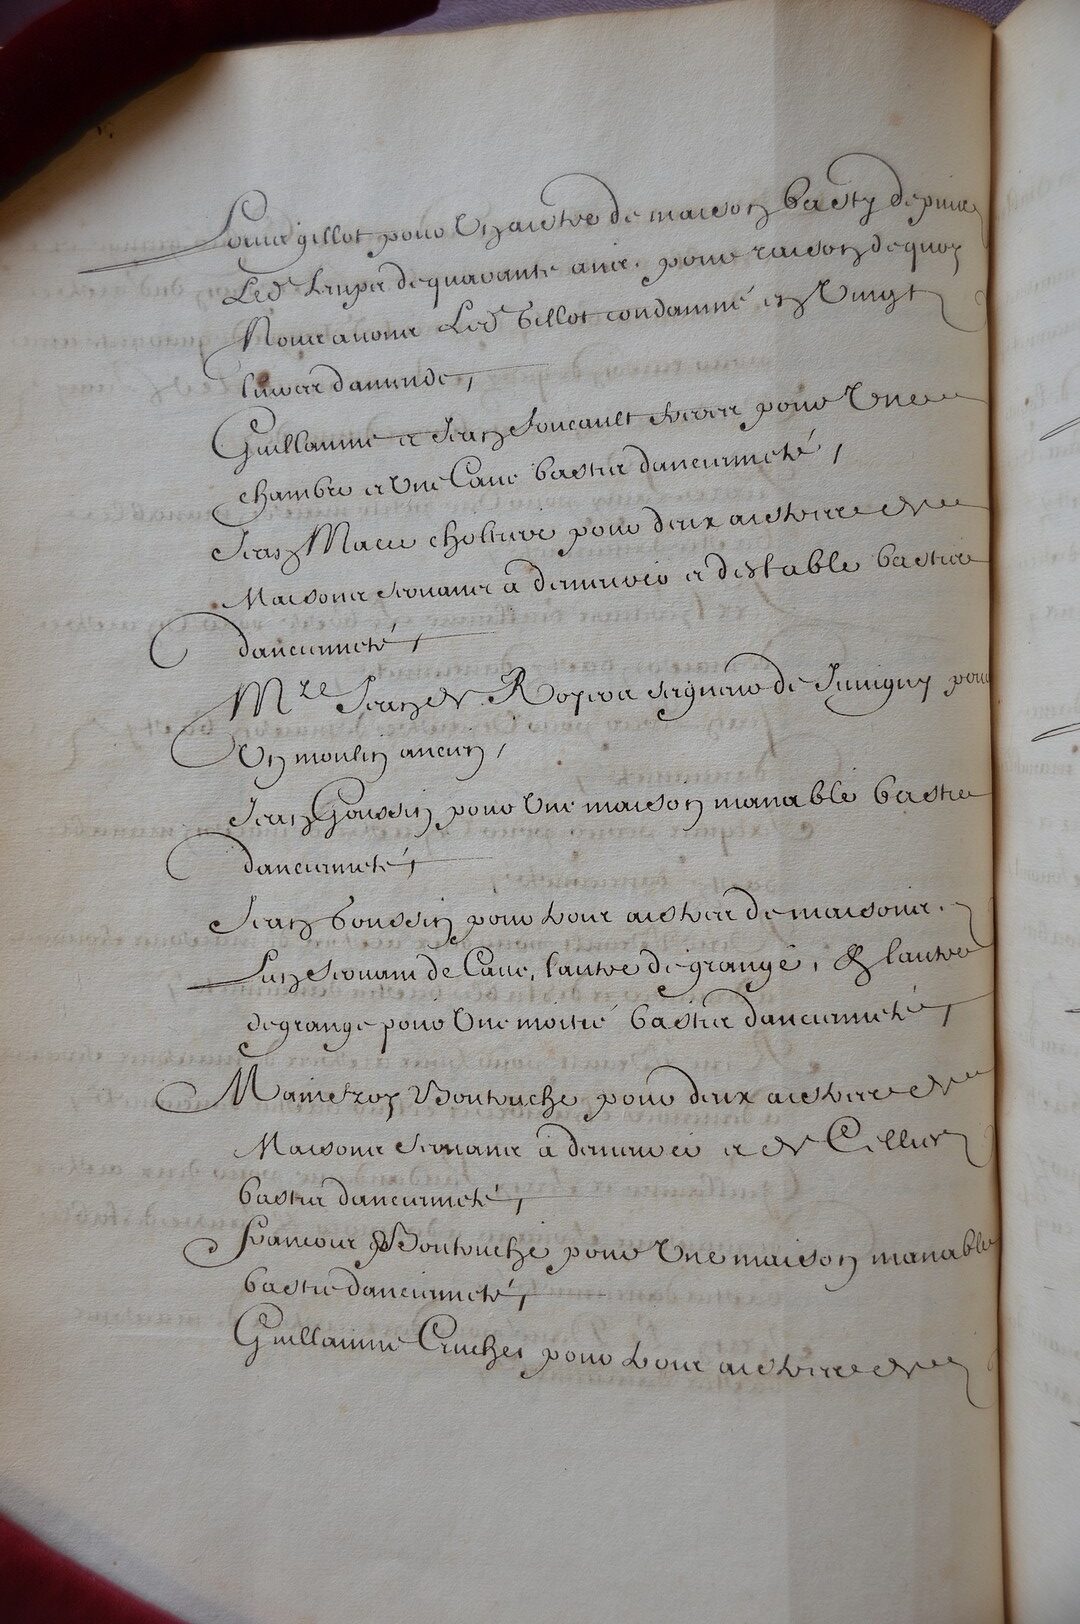 Louis gillot pour Un aistre de maison basty depuis
Led temps de quarante ans. pour raison de quoy
Nous avons Led Gillot condamné en Vingt
livres damende,
Guillaume et Jean foucault freres pour Une
chambre et Une Cave basties dancienneté,
Jean Macé pour deux aistres de
Maisons servans a demeurer et destable basties
danciennete,
Mre Jean de seigneur de Juvigny pour
Un moulin ancien,
Jean Goussin pour Une maison manable bastie
danciennete,
Jean Goussin pour trois aistres de maisons.
Lun servant de Cave, lautre de grange, & lautre
de grange pour Une moitié basties danciennete,
Boutruche pour deux aistres de
Maisons servans a demeurer et de Cellier
basties danciennete,
francois Boutruche pour Une maison manable
bastie danciennete,
Guillaume Cruchet pour trois aistres de